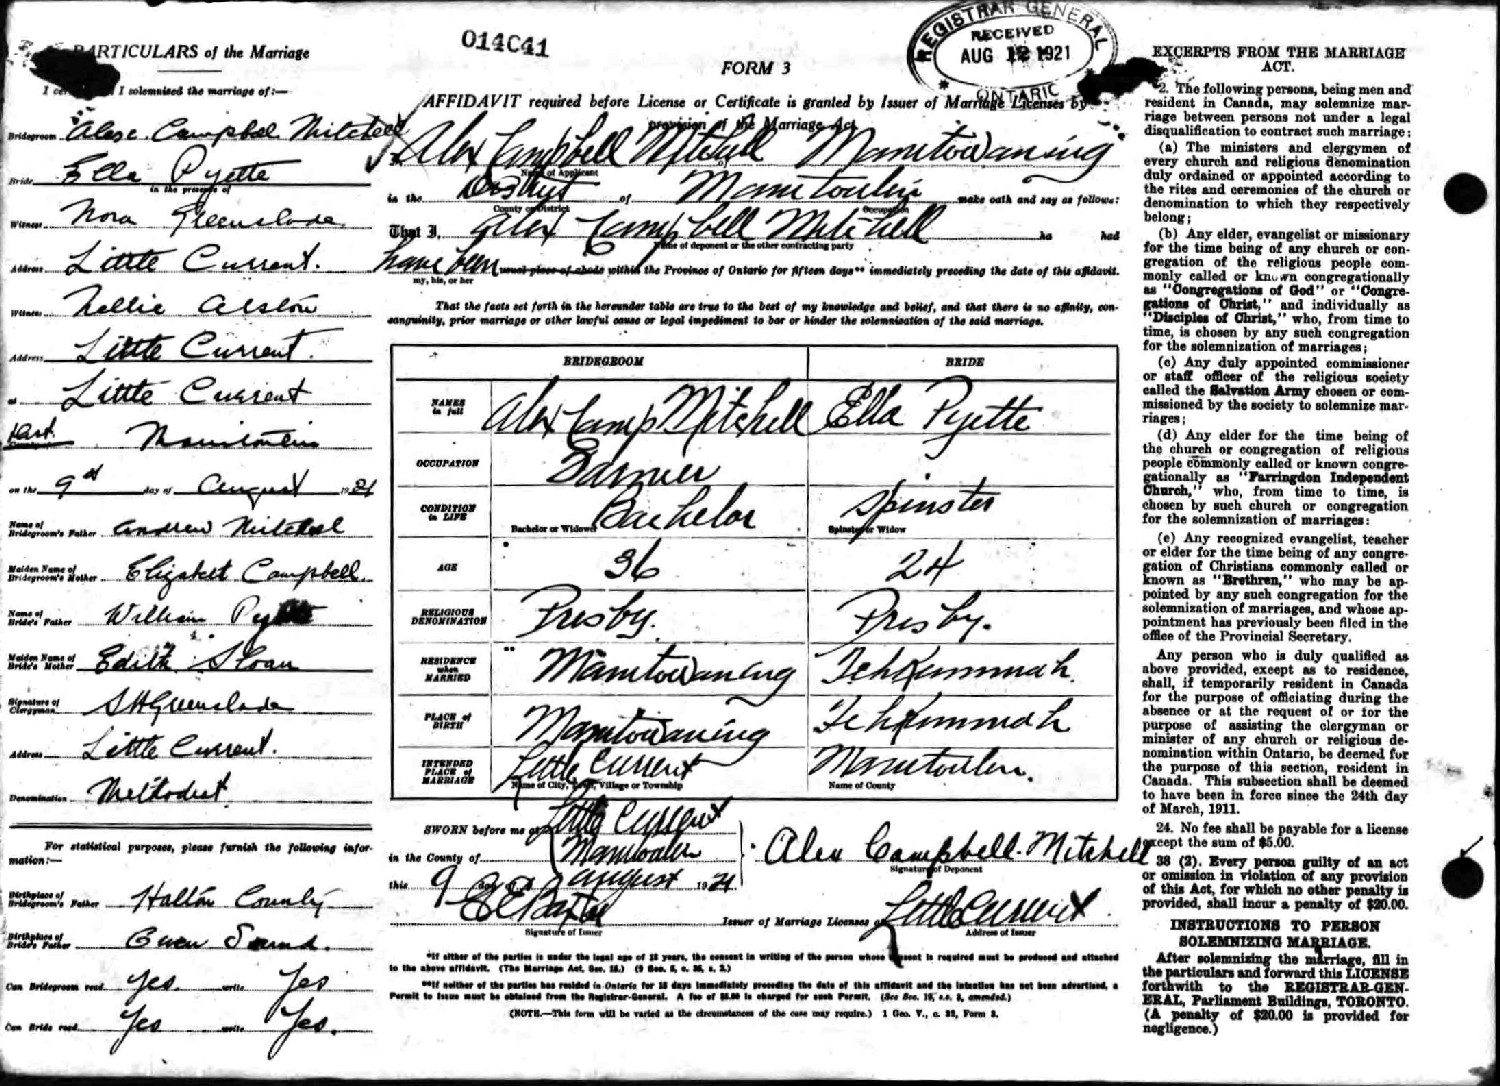 014C41
REGISTRAR GENERAL
RECEIVED
AUG 12 1921
ONTARIO
PARTICULARS of the Marriage
I solemnized the marriage of:—
Bridegroom Alexr. Campbell Mitchell
Bride Ella Pyette
in the presence of
Witness Nora Greenslade
Address Little Current.
Witness Nellie Alston
Address Little Current.
at Little Current
Manitoulin
on the 9th day of August 1921
Name of Bridegroom's Father Andrew Mitchell
Maiden Name of Bridegroom's Mother Elizabeth Campbell
Name of Bride's Father William Pyette
Maiden Name of Bride's Mother Edith Sloan
Signature of Clergyman S H Greenslade
Address Little Current.
Denomination Methodist
For statistical purposes, please furnish the following infor-
mation:—
Birthplace of Bridegroom's Father Halton County
Birthplace of Bride's Father Owen Sound.
Can Bridegroom read Yes. write Yes
Can Bride read Yes write Yes.
FORM 3
AFFIDAVIT required before License or Certificate is granted by Issuer of Marriage Licenses by
provision of the Marriage Act
I, Alex Campbell Mitchell of Manitowaning
Name of Applicant
in the District of Manitoulin make oath and say as follows:
County or District Occupation
That I, Alex Campbell Mitchell ha had
Name of deponent or the other contracting party
have been usual place of abode within the Province of Ontario for fifteen days** immediately preceding the date of this affidavit.
my, his, or her
That the facts set forth in the hereunder table are true to the best of my knowledge and belief, and that there is no affinity, con-
sanguinity, prior marriage or other lawful cause or legal impediment to bar or hinder the solemnization of the said marriage.
BRIDEGROOM BRIDE
NAMES in full Alex Camp Mitchell Ella Pyette
OCCUPATION Farmer
CONDITION in LIFE Bachelor Spinster
Bachelor or Widower Spinster or Widow
AGE 36 24
RELIGIOUS DENOMINATION Presby. Presby.
RESIDENCE when MARRIED Manitowaning Tehkummah.
PLACE of BIRTH Manitowaning Tehkummah
INTENDED PLACE of MARRIAGE Little Current Manitoulin.
Name of City, Town, Village or Township Name of County
SWORN before me at Little Current
in the County of Manitoulin
this 9 day of August 1921
Alex Campbell Mitchell
Signature of Deponent
Signature of Issuer
Issuer of Marriage Licenses Little Current
Address of Issuer
*If either of the parties is under the legal age of 18 years, the consent in writing of the person whose consent is required must be produced and attached
to the above affidavit. (The Marriage Act, Sec. 15.)
**If neither of the parties has resided in Ontario for 15 days immediately preceding the date of this affidavit and the intention has not been advertised, a
Permit to Issue must be obtained from the Registrar-General. A fee of $5.00 is charged for such Permit. (See Sec. 19, s.s. 5, amended.)
(NOTE.—This form will be varied as the circumstances of the case may require.) 1 Geo. V., c. 32, Form 3.
EXCERPTS FROM THE MARRIAGE
ACT.
2. The following persons, being men and
resident in Canada, may solemnize mar-
riage between persons not under a legal
disqualification to contract such marriage:
(a) The ministers and clergymen of
every church and religious denomination
duly ordained or appointed according to
the rites and ceremonies of the church or
denomination to which they respectively
belong;
(b) Any elder, evangelist or missionary
for the time being of any church or con-
gregation of the religious people com-
monly called or known congregationally
as "Congregations of God" or "Congre-
gations of Christ," and individually as
"Disciples of Christ," who, from time to
time, is chosen by any such congregation
for the solemnization of marriages;
(c) Any duly appointed commissioner
or staff officer of the religious society
called the Salvation Army chosen or com-
missioned by the society to solemnize mar-
riages;
(d) Any elder for the time being of
the church or congregation of religious
people commonly called or known congre-
gationally as "Farringdon Independent
Church," who, from time to time, is
chosen by such church or congregation
for the solemnization of marriages:
(e) Any recognized evangelist, teacher
or elder for the time being of any congre-
gation of Christians commonly called or
known as "Brethren," who may be ap-
pointed by any such congregation for the
solemnization of marriages, and whose ap-
pointment has previously been filed in the
office of the Provincial Secretary.
Any person who is duly qualified as
above provided, except as to residence,
shall, if temporarily resident in Canada
for the purpose of officiating during the
absence or at the request of or for the
purpose of assisting the clergyman or
minister of any church or religious de-
nomination within Ontario, be deemed for
the purpose of this section, resident in
Canada. This subsection shall be deemed
to have been in force since the 24th day
of March, 1911.
24. No fee shall be payable for a license
except the sum of $5.00.
38 (2). Every person guilty of an act
or omission in violation of any provision
of this Act, for which no other penalty is
provided, shall incur a penalty of $20.00.
INSTRUCTIONS TO PERSON
SOLEMNIZING MARRIAGE.
After solemnizing the marriage, fill in
the particulars and forward this LICENSE
forthwith to the REGISTRAR-GEN-
ERAL, Parliament Buildings, TORONTO.
(A penalty of $20.00 is provided for
negligence.)